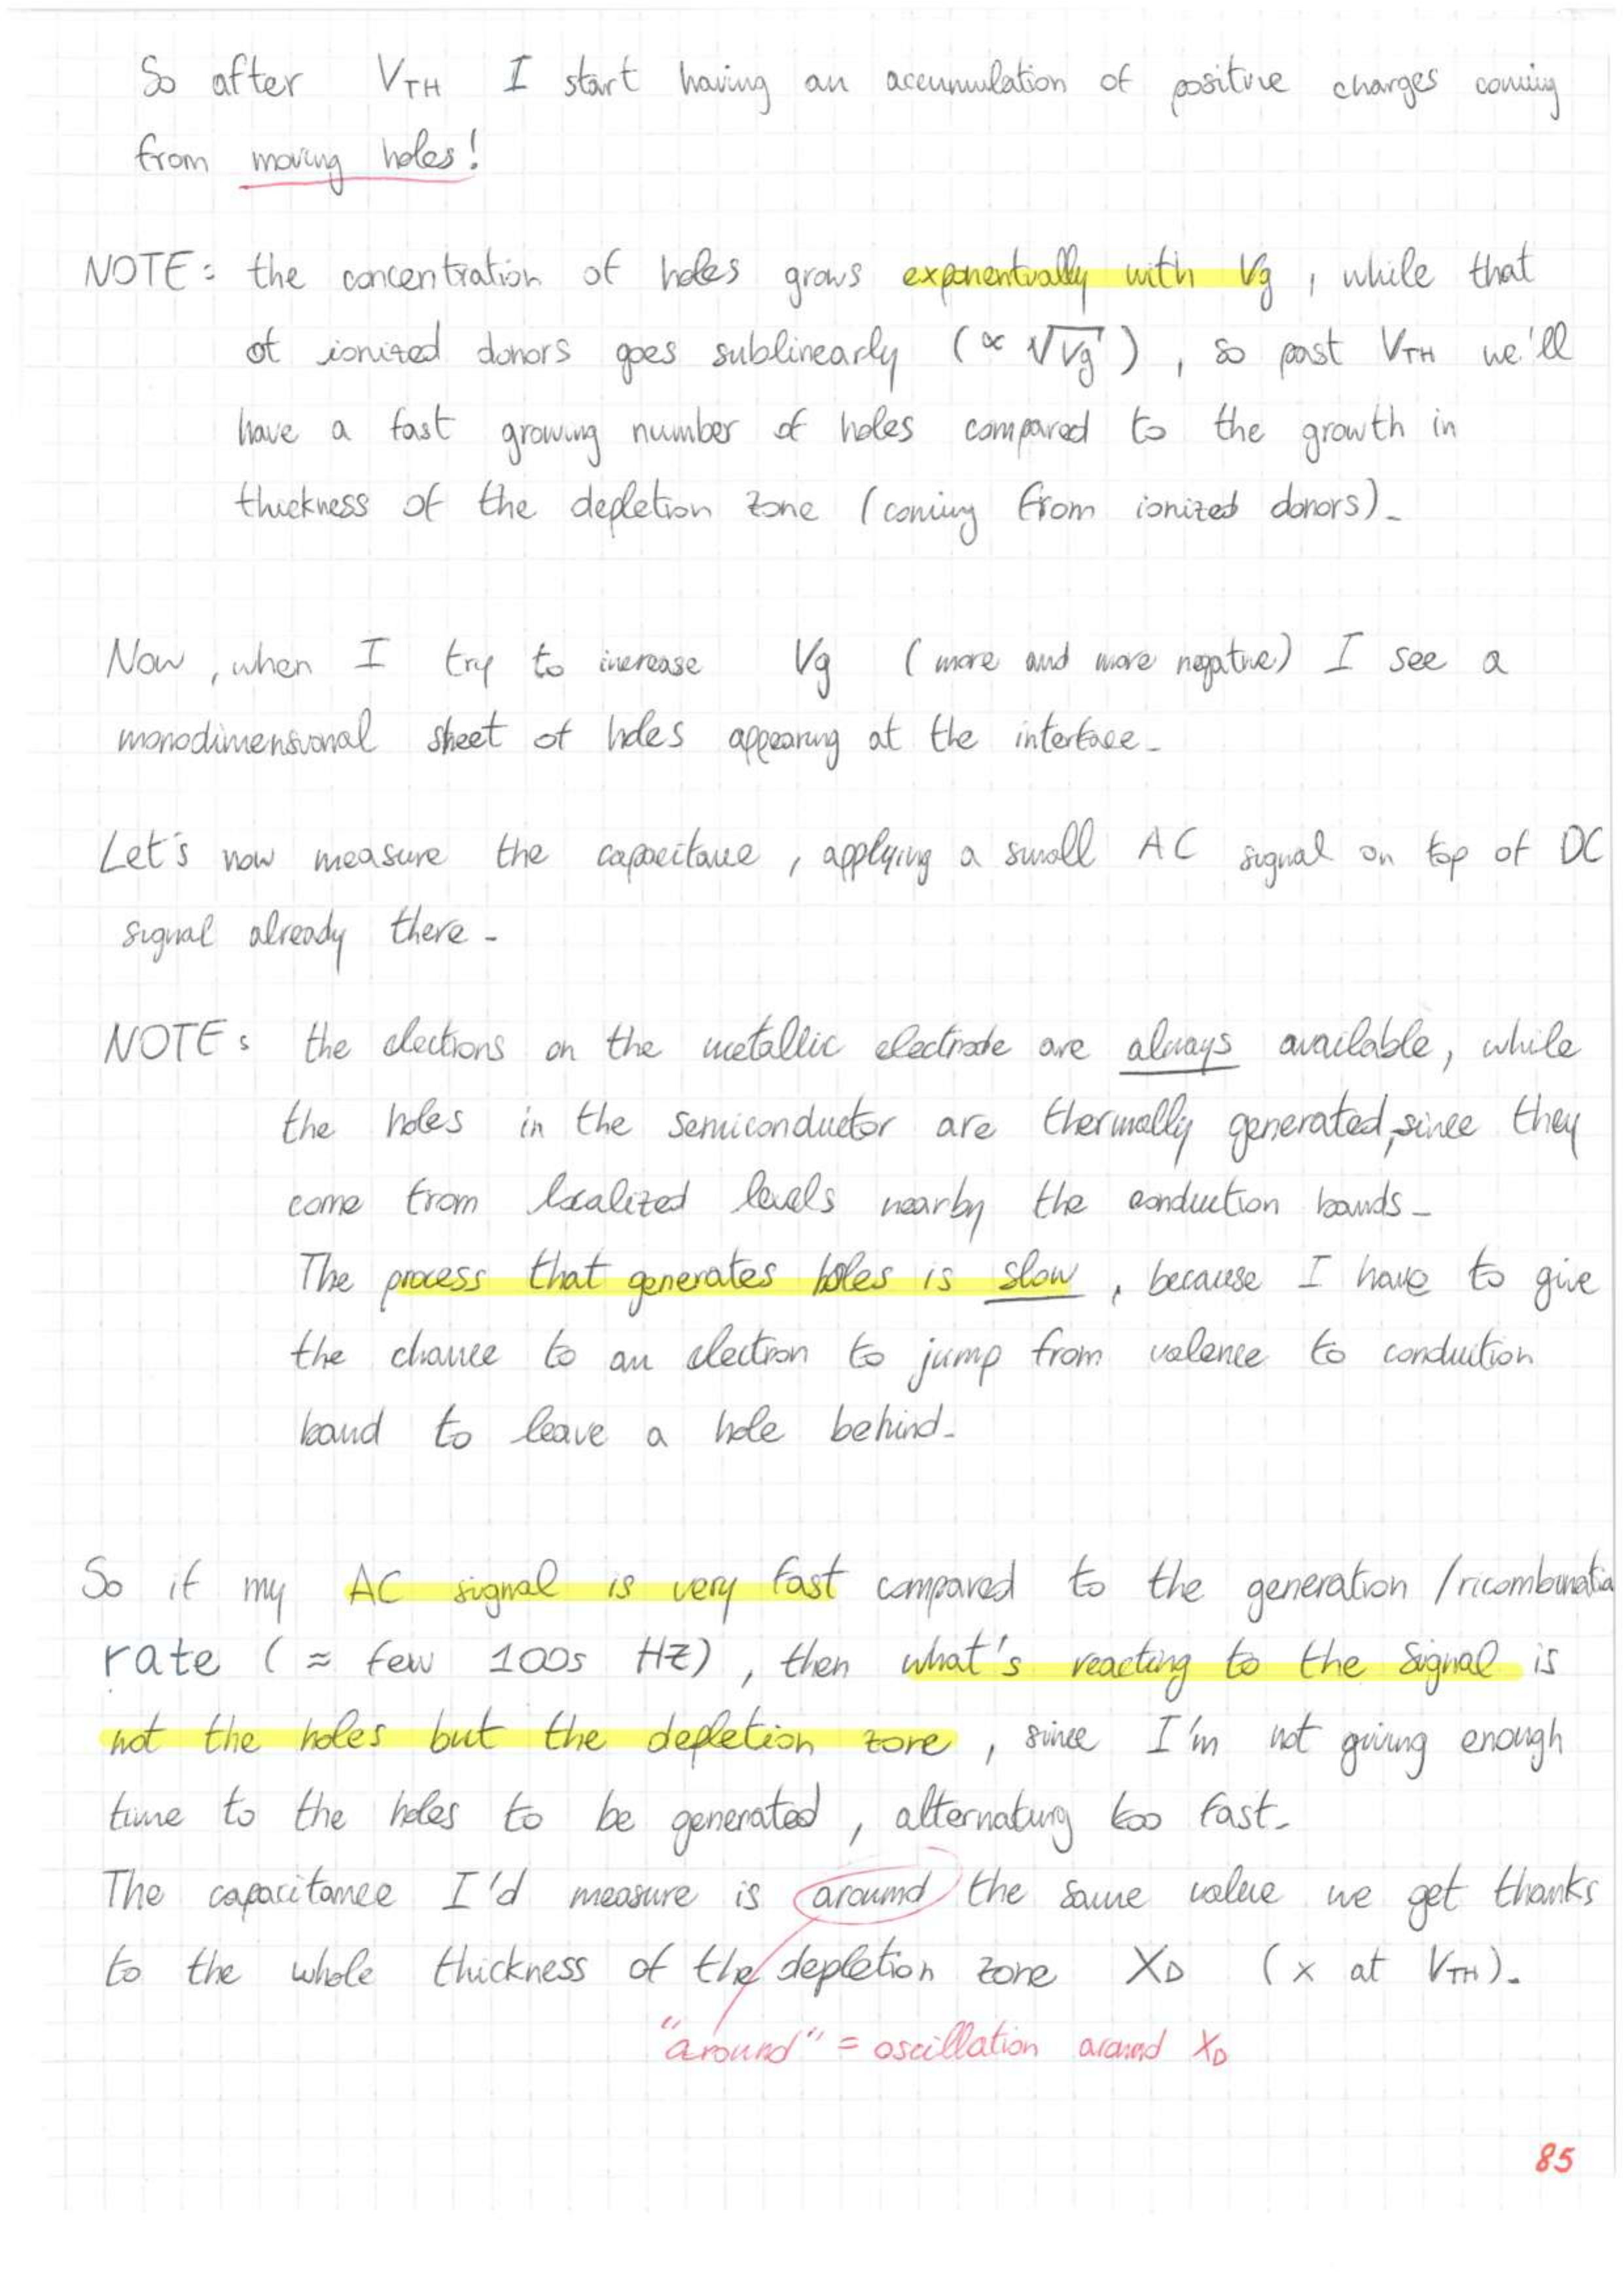 So after VTH I start having an accumulation of positive charges coming
from moving holes!
NOTE: the concentration of holes grows exponentially with Vg, while that
of ionized donors goes sublinearly (∝ √Vg), so past VTH we'll
have a fast growing number of holes compared to the growth in
thickness of the depletion zone (coming from ionized donors).
Now, when I try to increase Vg (more and more negative) I see a
monodimensional sheet of holes appearing at the interface.
Let's now measure the capacitance, applying a small AC signal on top of DC
signal already there.
NOTE: the electrons on the metallic electrode are always available, while
the holes in the semiconductor are thermally generated, since they
come from localized levels nearby the conduction bands.
The process that generates holes is slow, because I have to give
the chance to an electron to jump from valence to conduction
band to leave a hole behind.
So if my AC signal is very fast compared to the generation/ricombinatio
rate (≈ few 100s Hz), then what's reacting to the signal is
not the holes but the depletion zone, since I'm not giving enough
time to the holes to be generated, alternating too fast.
The capacitance I'd measure is around the same value we get thanks
to the whole thickness of the depletion zone XD (x at VTH).
"around" = oscillation around XD
85